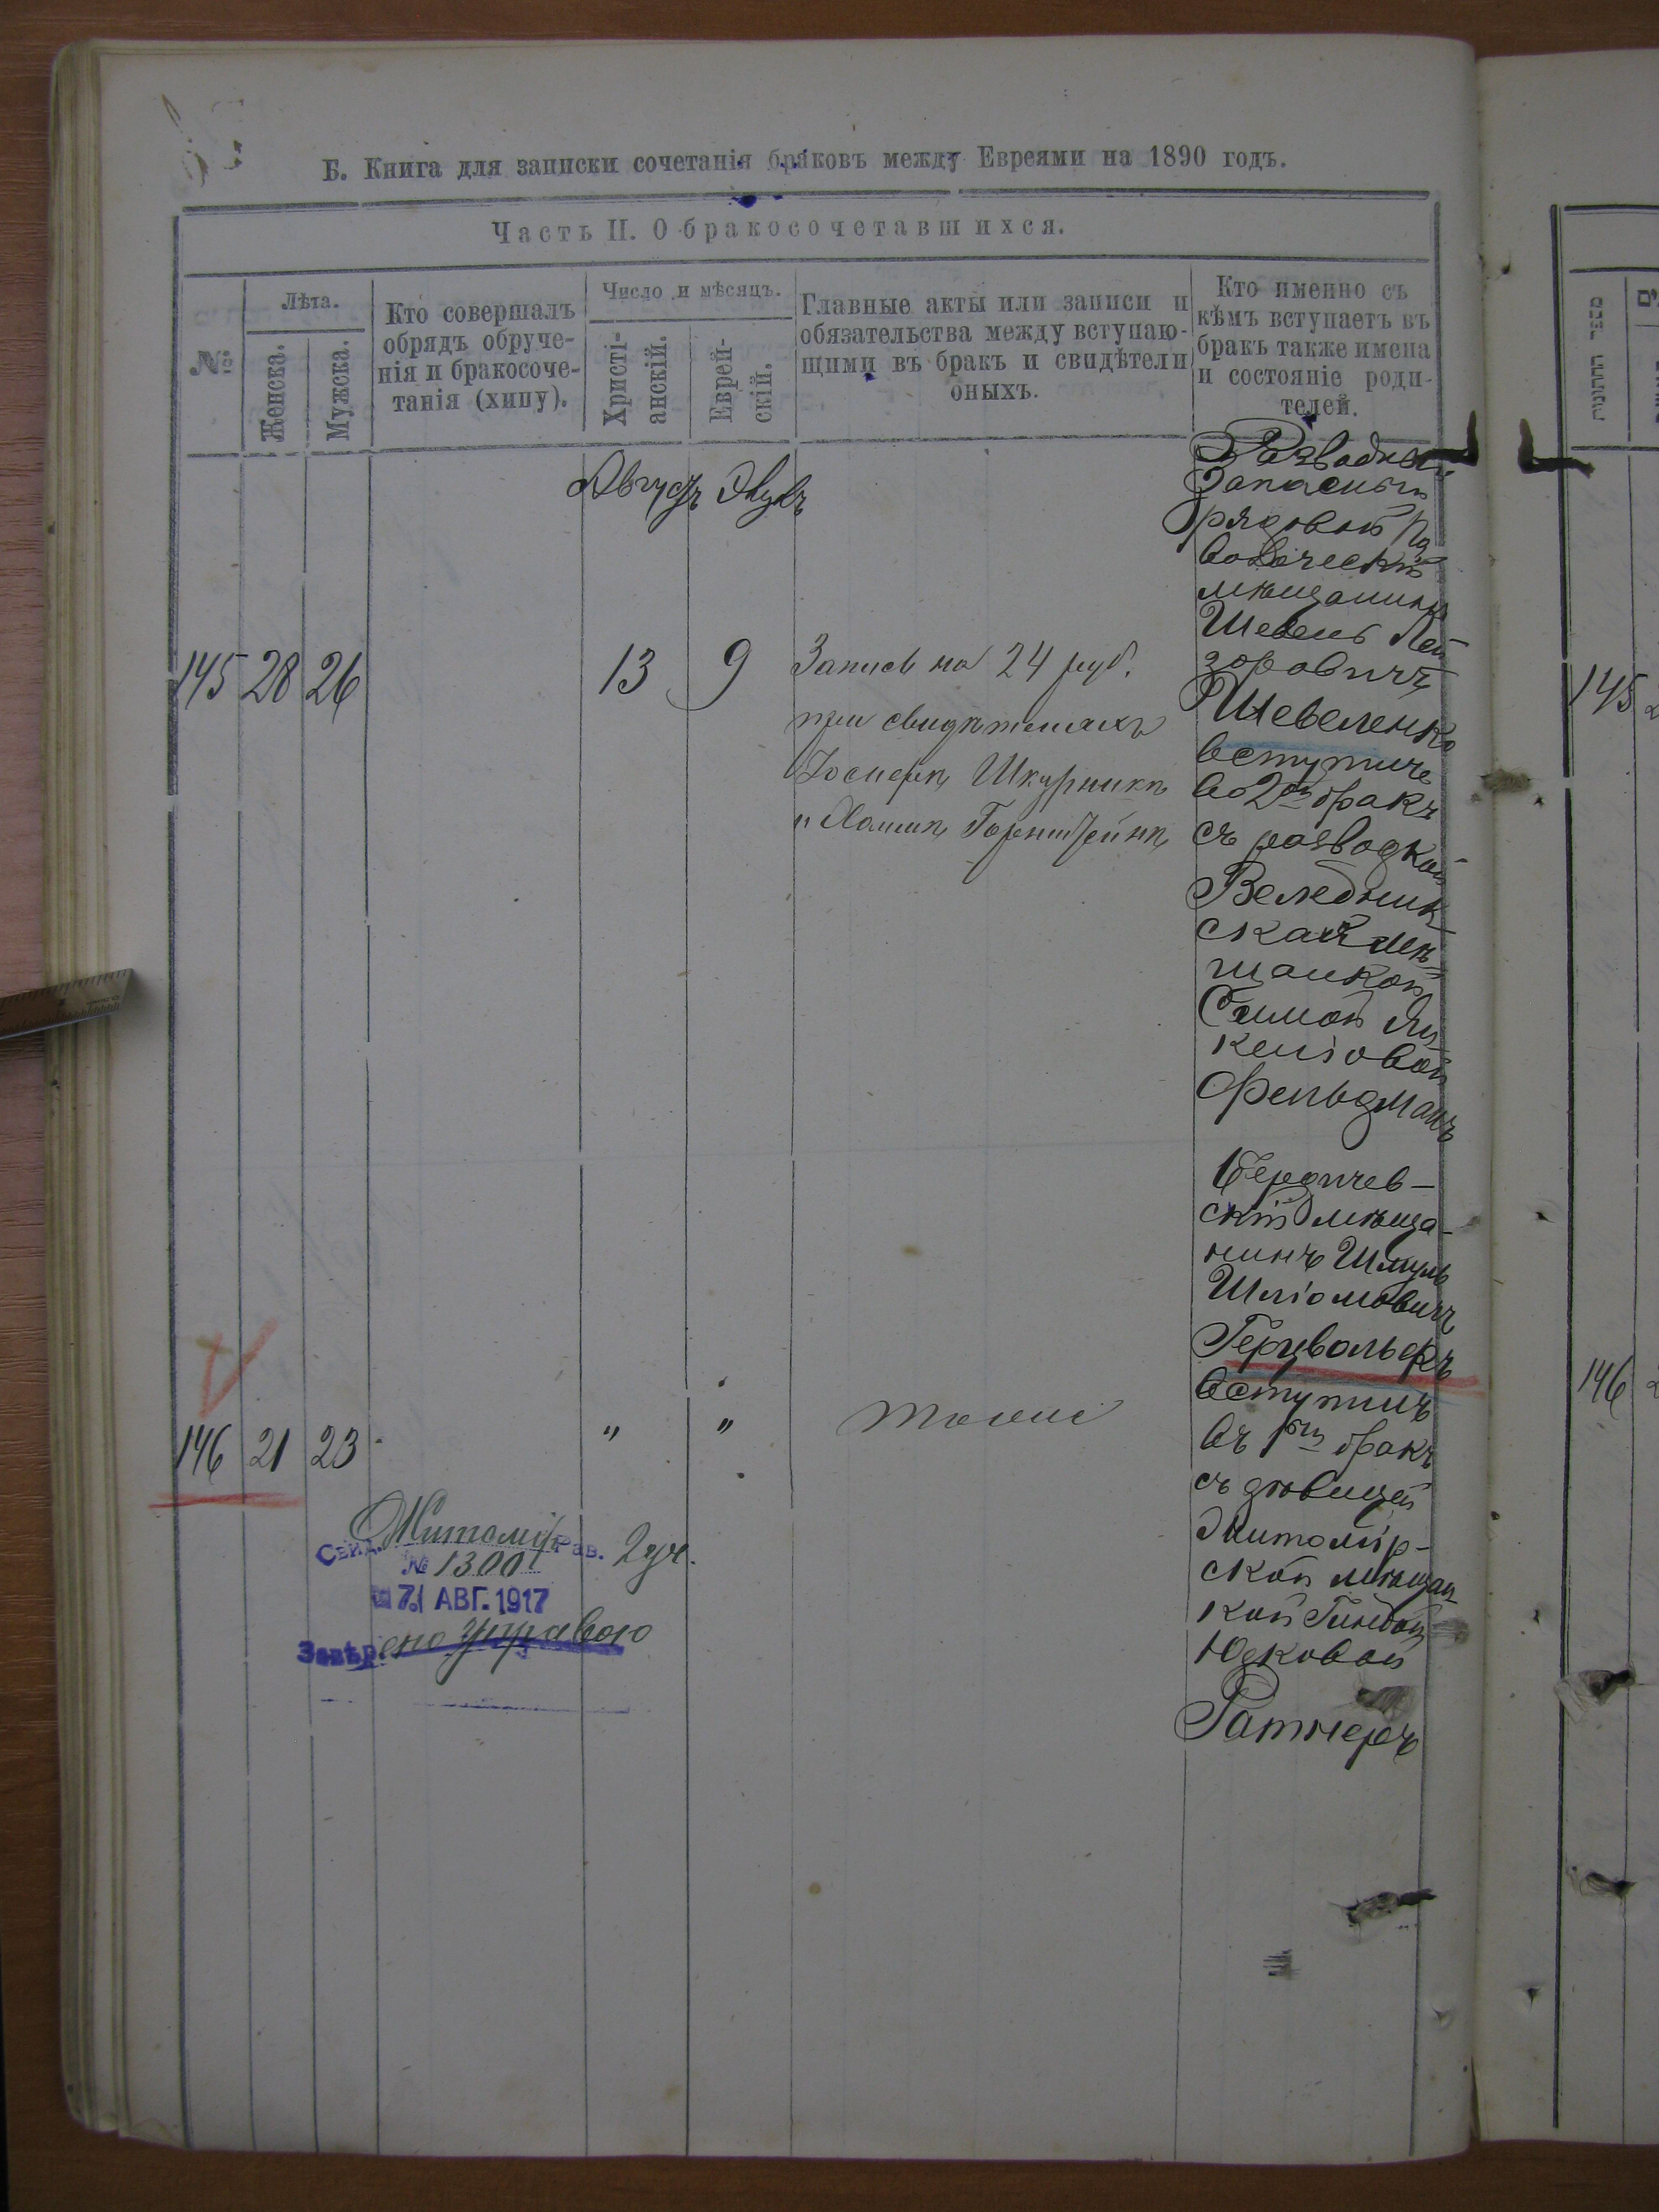 Б. Книга для записки сочетанія браковъ между Евреями на 1890 годъ.
Часть II. О бракосочетавшихся.
№
Лѣта.
Женска.
Мужска.
Кто совершалъ
обрядъ обруче-
нія и бракосоче-
танія (хипу).
Число и мѣсяцъ.
Христі-
анскій.
Еврей-
скій.
Главные акты или записи и
обязательства между вступаю-
щими въ бракъ и свидѣтели
оныхъ.
Кто именно съ
кѣмъ вступаетъ въ
бракъ также имена
и состояніе роди-
телей.
Августъ
145 28 26
13 9
Запись на 24 руб.
при свидѣтеляхъ
Іосифѣ Шкурникѣ
и Горнштейнѣ
Разводный
Запасный
рядовой
мѣщанинъ
Шевель Лей
зоровичъ
Шевеленко
вступилъ
во 2ой бракъ
съ разводкой
Веледник
ской мѣ
щанкой
Симой Ян
келіовой
Фельдманъ
146 21 23
" "
тоже
Бердичев-
скій мѣща-
нинъ Шмуль
Шліомовичъ
Герцвольфъ
вступилъ
въ 1ый бракъ
съ дѣвицей
Житомір-
ской мѣщан
кой Гиндой
Юдковой
Ратнеръ
Свид. Житомір Рав. 2 уч.
№ 1300
7 АВГ. 1917
Завѣрено управою
מספר החתונה
145
146